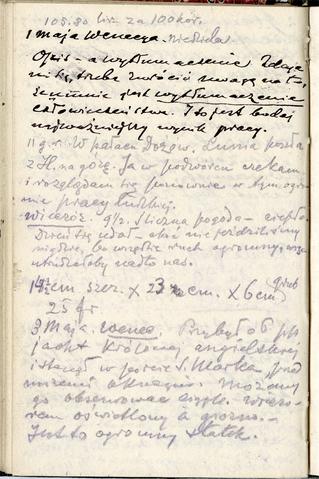 105.80 lir. za 100 kor.
1 maja Wenecya. niedziela
Opis - a wytłumaczenie. Zdaje
mi się, trzeba zwrócić uwagę na to,
że w mnie jest wytłumaczenie
człowieczeństwa. I to jest bodaj
najważniejszy wynik pracy.
11 g. r. W pałacu Dożów. Lunia poszła
z H. na górę. Ja w podwórcu czekam
i rozglądam się ponownie w tym ogro
mie pracy ludzkiej.
Wieczór. 9 1/2. Śliczna pogoda - ciepło.
Dzień się udał, choć nie jeździliśmy
nigdzie, bo wszędzie ruch ogromny,
utrudniałoby nad to nas.
14 1/2 cm szer. X 23 cm. X 6 cm grub
25 fr
3 Maja. Wenec. Przybył o 6 pp
jacht Królowej angielskiej
i stanął w porcie S. Marka, przed
naszemi oknami. Możemy
go obserwować ciągle. Wieczo-
rem oświetlony a giorno. -
Jest to ogromny statek.